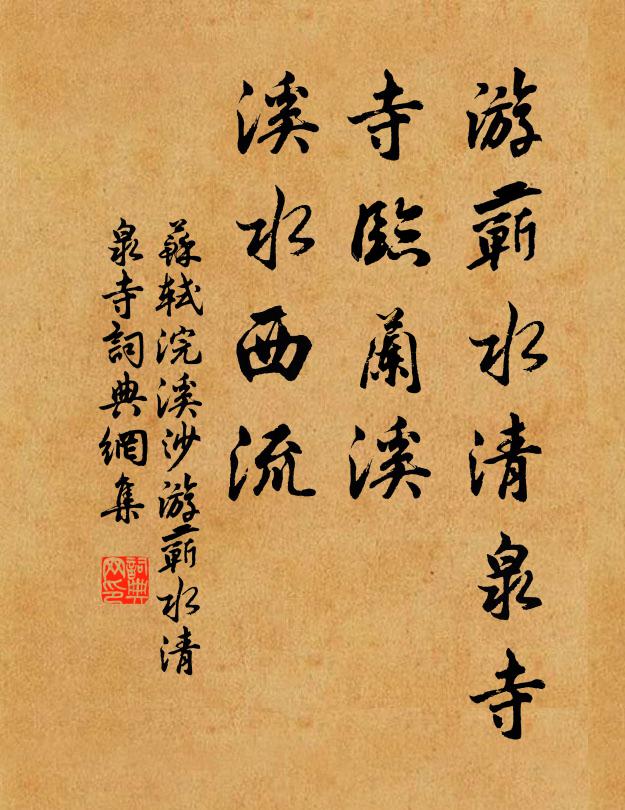 游蘄水清泉寺
寺臨蘭溪
溪水西流
蘇軾浣溪沙游蘄水清
泉寺詞典網集
詞典
网印